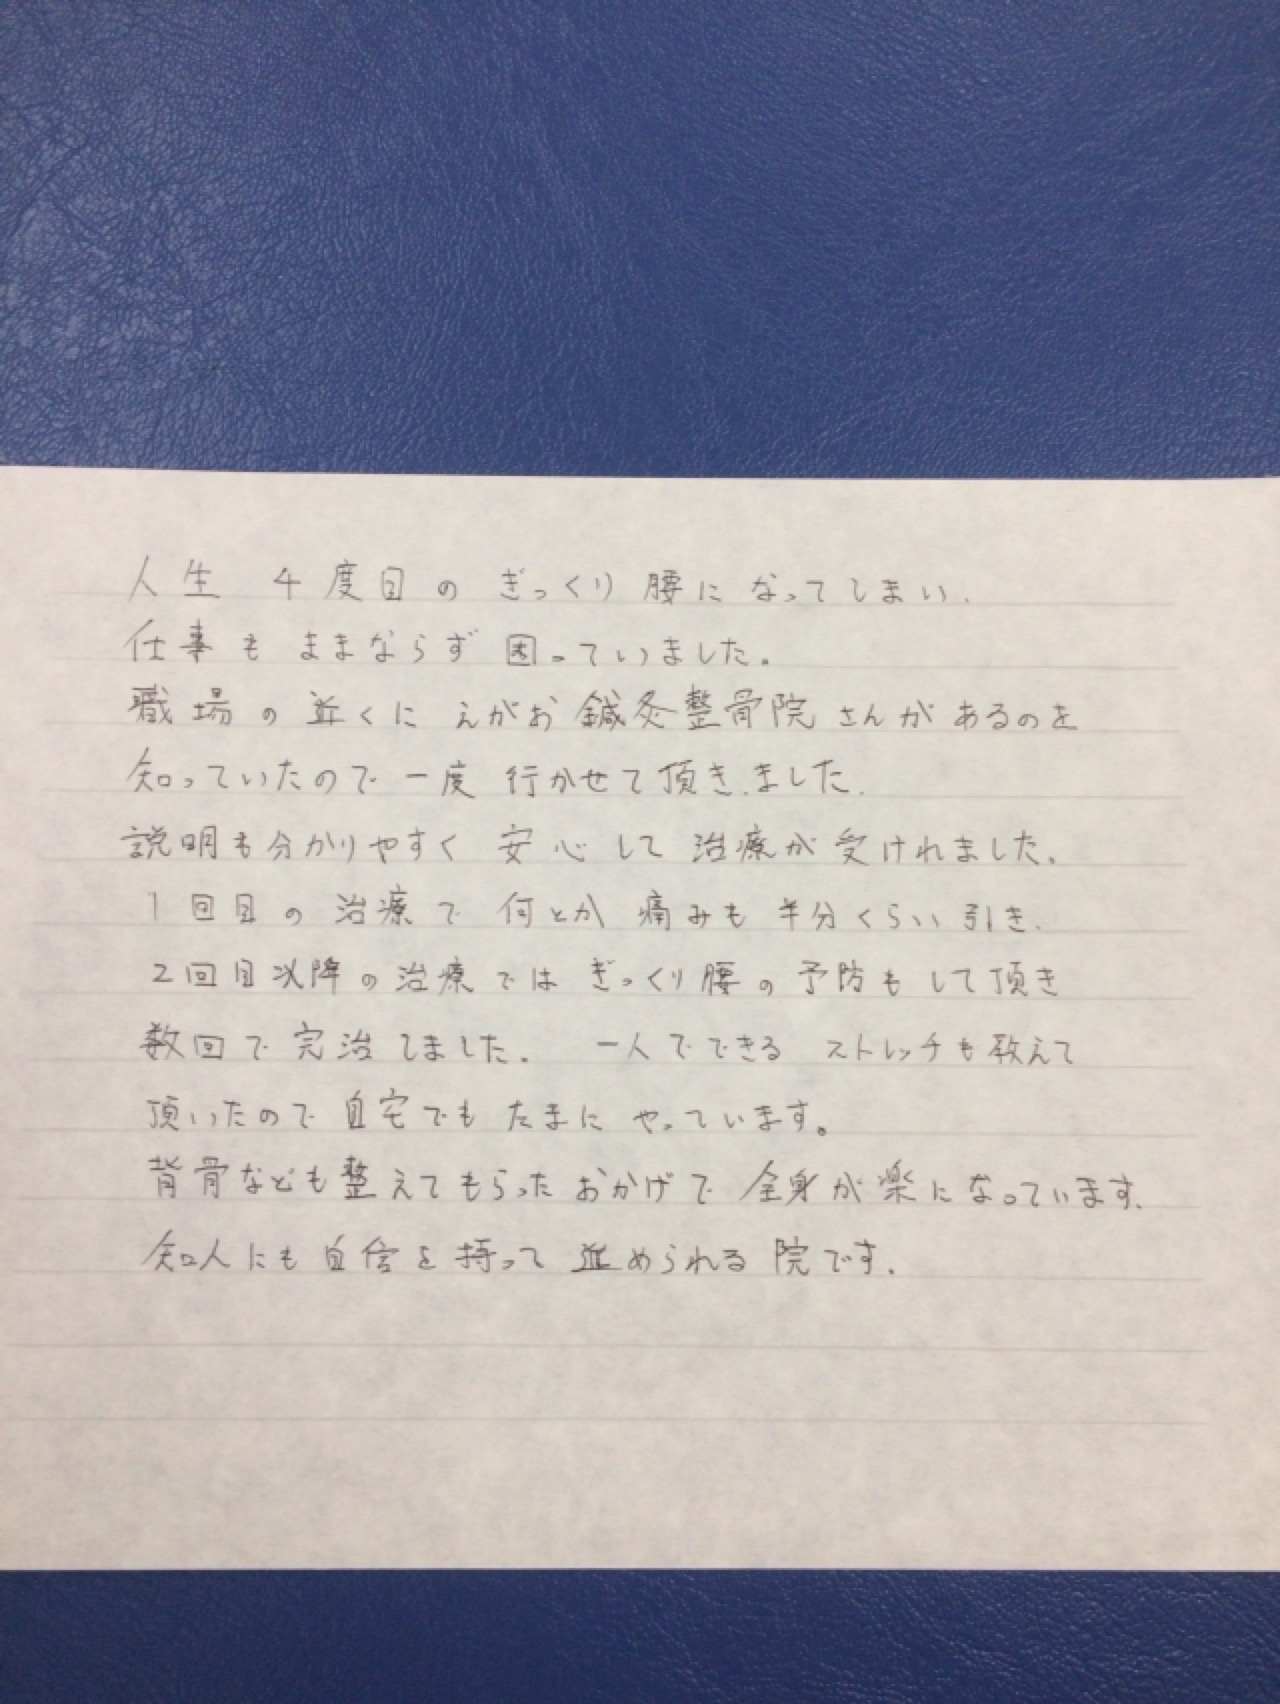 人生 4度目の ぎっくり 腰に なってしまい、
仕事も ままならず 困っていました。
職場の 近くに えがお 鍼灸整骨院 さんが あるのを
知っていたので 一度 行かせて頂きました。
説明も分かりやすく 安心して 治療が 受けれました。
1回目の 治療で 何とか 痛みも 半分くらい 引き、
2回目以降の治療では ぎっくり腰の 予防もして頂き
数回で 完治しました。 一人でできる ストレッチも教えて
頂いたので 自宅でも たまに やっています。
背骨なども整えてもらった おかげで 全身が楽になっています。
知人にも 自信を持って 進められる 院です。